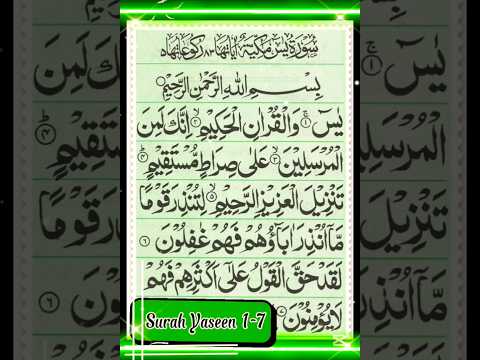 سُوْرَةُ يٰسٓ مَكِّيَّةٌ اٰيَاتُهَا ٨٣ رُكُوْعَاتُهَا ٥
بِسْمِ اللّٰهِ الرَّحْمٰنِ الرَّحِيْمِ
يٰسٓ ۝١ وَالْقُرْاٰنِ الْحَكِيْمِ ۝٢ اِنَّكَ لَمِنَ
الْمُرْسَلِيْنَ ۝٣ عَلٰى صِرَاطٍ مُّسْتَقِيْمٍ ۝٤
تَنْزِيْلَ الْعَزِيْزِ الرَّحِيْمِ ۝٥ لِتُنْذِرَ قَوْمًا
مَّاۤ اُنْذِرَ اٰبَآؤُهُمْ فَهُمْ غٰفِلُوْنَ ۝٦
لَقَدْ حَقَّ الْقَوْلُ عَلٰۤى اَكْثَرِهِمْ فَهُمْ
لَا يُؤْمِنُوْنَ ۝٧
Surah Yaseen 1-7